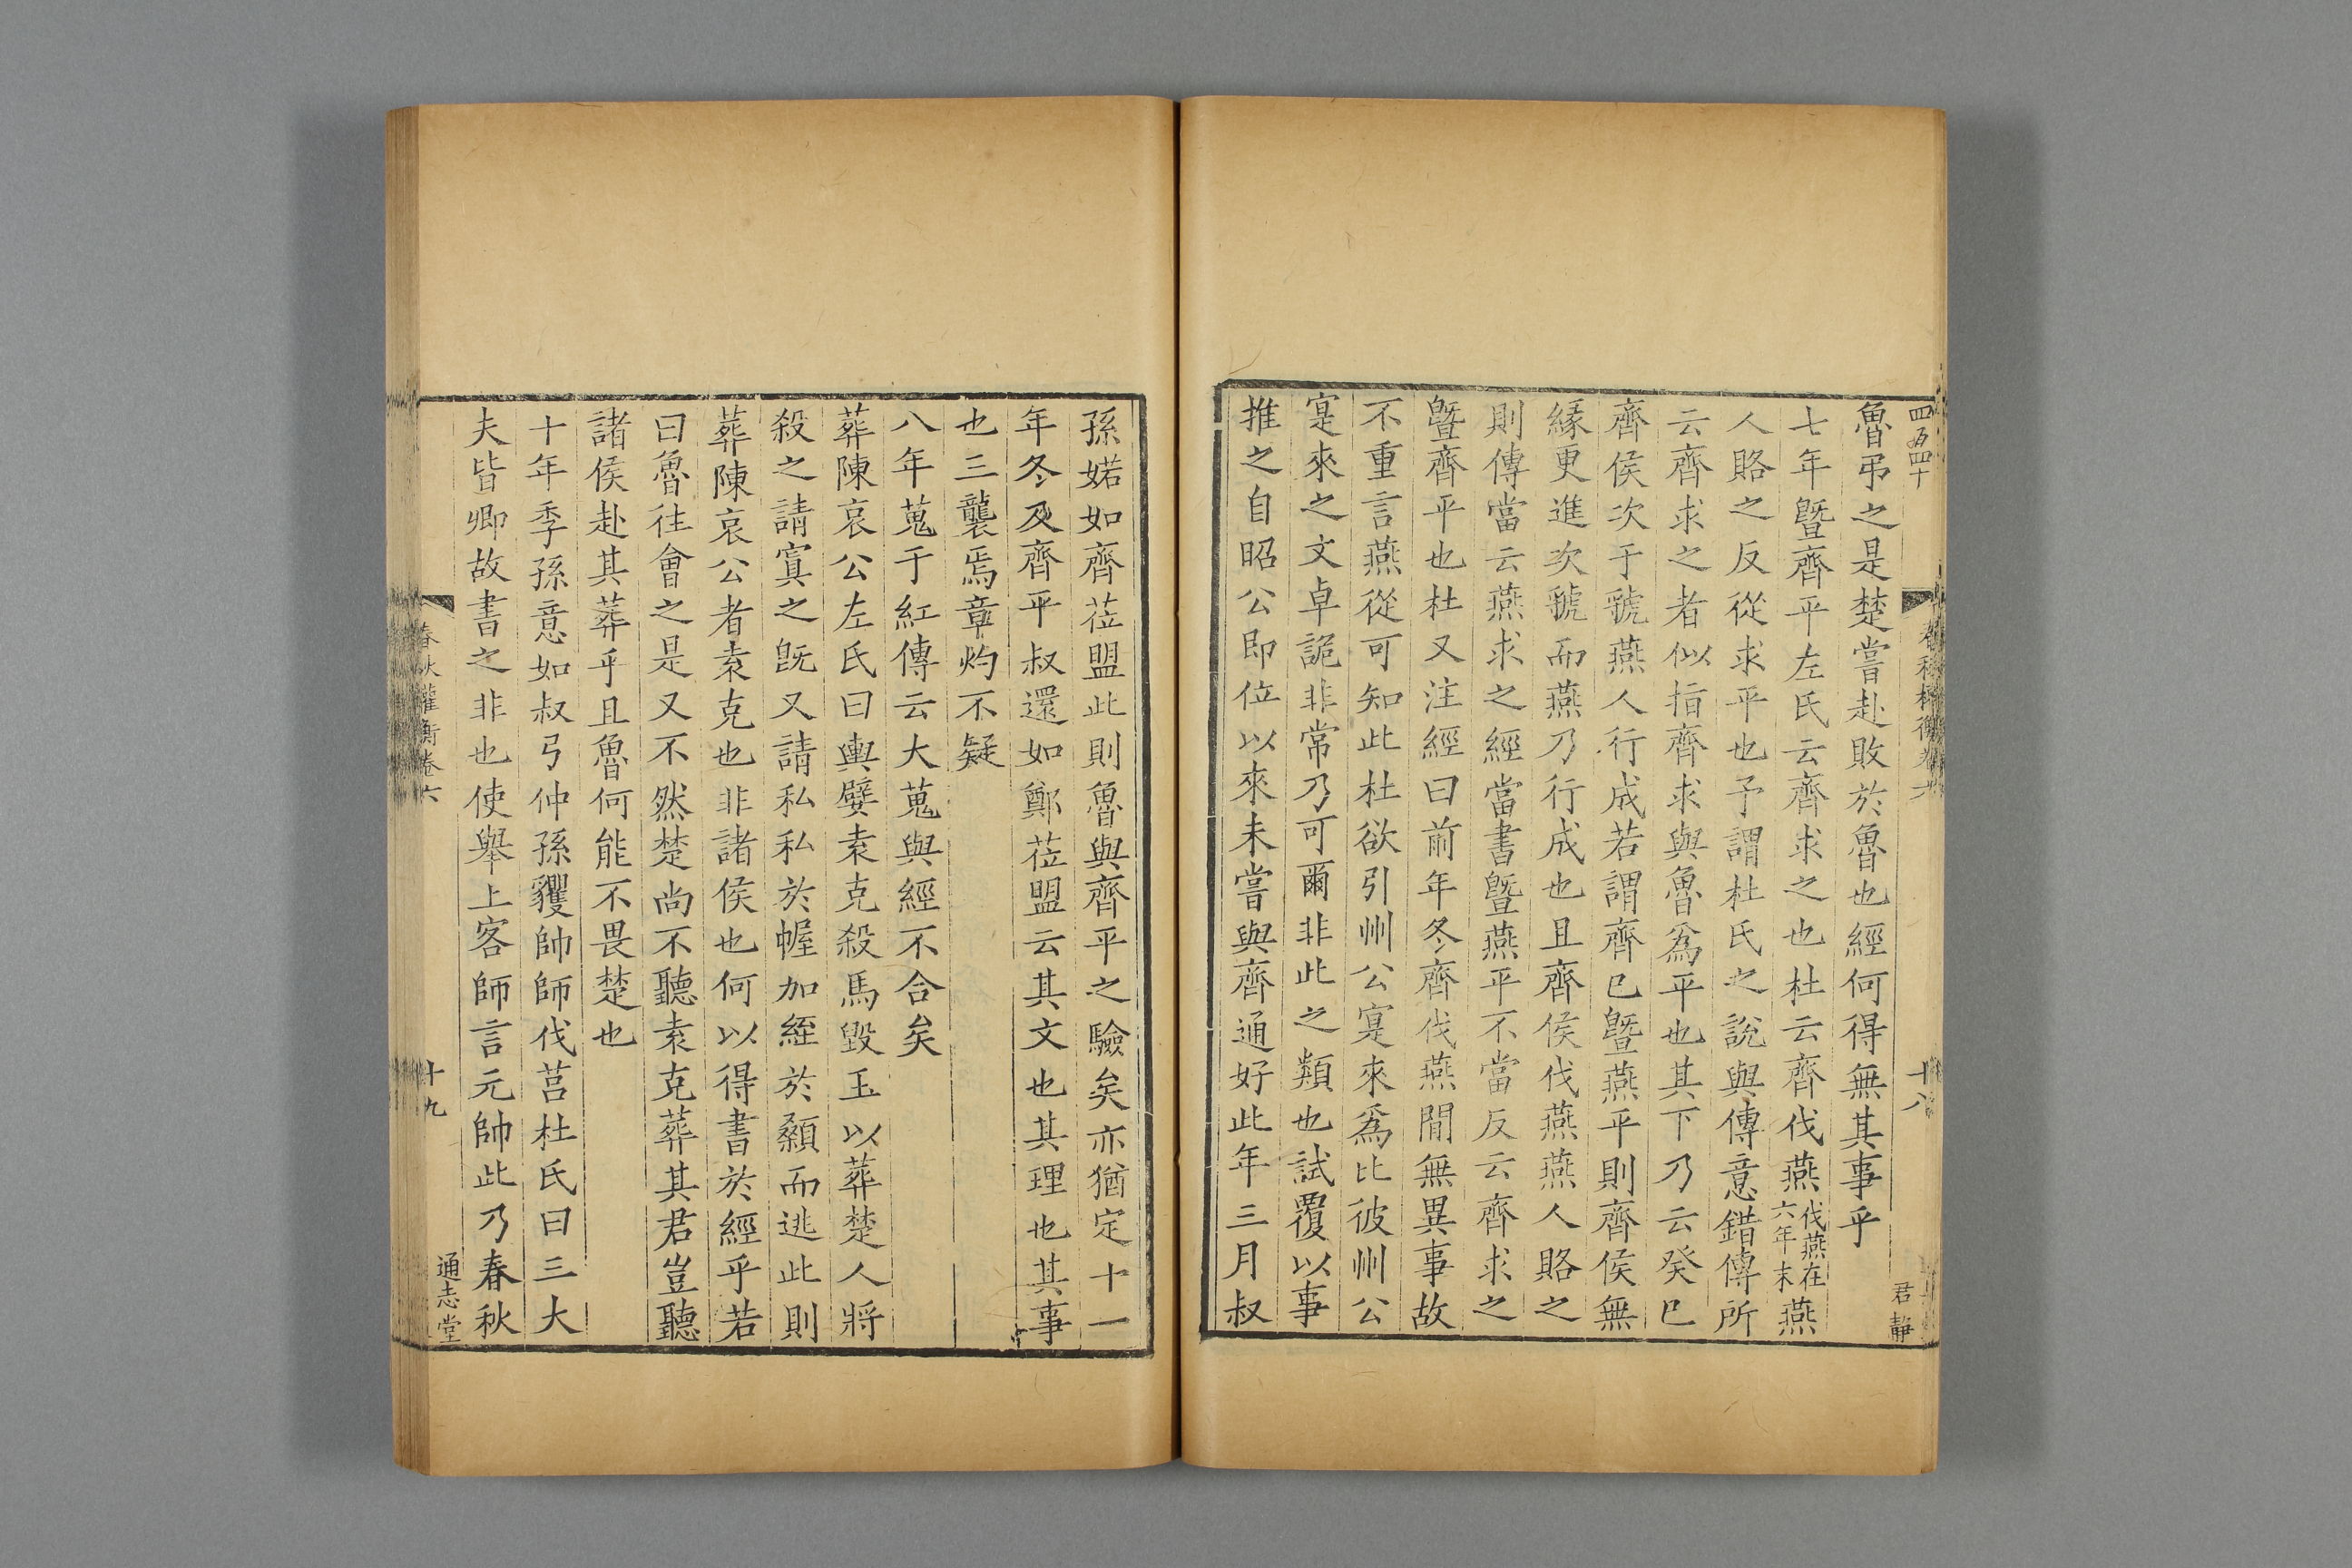 四百四十
春秋權衡卷六
十八
君靜
魯弔之是楚嘗赴敗於魯也經何得無其事乎
七年曁齊平左氏云齊求之也杜云齊伐燕伐燕在六年末燕
人賂之反從求平也予謂杜氏之說與傳意錯傳所
云齊求之者似指齊求與魯爲平也其下乃云癸巳
齊侯次于虢燕人行成若謂齊已曁燕平則齊侯無
緣更進次虢而燕乃行成也且齊侯伐燕燕人賂之
則傳當云燕求之經當書曁燕平不當反云齊求之
曁齊平也杜又注經曰前年冬齊伐燕閒無異事故
不重言燕從可知此杜欲引州公寔來爲比彼州公
寔來之文卓詭非常乃可爾非此之類也試覆以事
推之自昭公即位以來未嘗與齊通好此年三月叔
孫婼如齊莅盟此則魯與齊平之驗矣亦猶定十一
年冬及齊平叔還如鄭莅盟云其文也其理也其事
也三襲焉章灼不疑
八年蒐于紅傳云大蒐與經不合矣
葬陳哀公左氏曰輿嬖袁克殺馬毀玉以葬楚人將
殺之請寘之旣又請私私於幄加絰於顙而逃此則
葬陳哀公者袁克也非諸侯也何以得書於經乎若
曰魯往會之是又不然楚尚不聽袁克葬其君豈聽
諸侯赴其葬乎且魯何能不畏楚也
十年季孫意如叔弓仲孫貜帥師伐莒杜氏曰三大
夫皆卿故書之非也使舉上客師言元帥此乃春秋
春秋權衡卷六
十九
通志堂